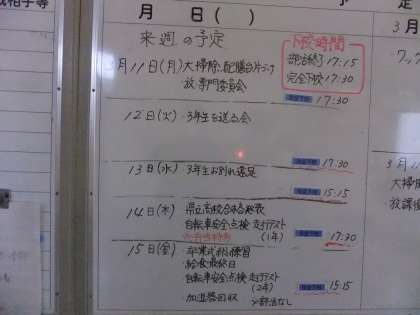 月 日( ) 予 定
来週の予定
下校時間
部活終了 17:15
完全下校 17:30
3月11日(月) 大掃除、配膳台片づけ
放 専門委員会
完全下校 17:30
12日(火)・3年生を送る会
完全下校 17:30
13日(水)・3年生お別れ遠足
完全下校 15:15
14日(木)・県立高校合格発表
自転車安全点検 走行テスト
(1年)
完全下校 17:30
15日(金)・卒業式総練習
・給食最終日
自転車安全点検 走行テスト
(2年)
完全下校 15:15
・加湿器回収 ※部活なし
3月
3月11
大掃除
放課後